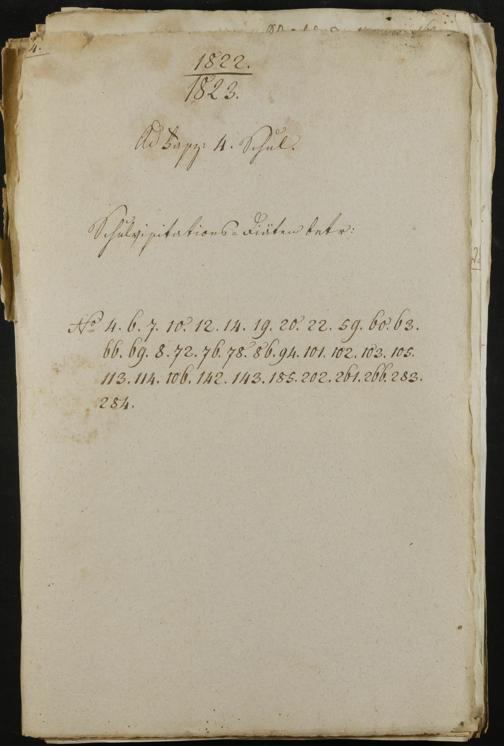 4.
1822.
1823.
Ad Fasz: 4. Schul.
Schulvisitations=Diäten betr:
No 4. 6. 7. 10. 12. 14. 19. 20. 22. 59. 60. 63.
66. 69. 8. 72. 76. 78. 86. 94. 101. 102. 103. 105.
113. 114. 106. 142. 143. 185. 202. 261. 266. 283.
284.